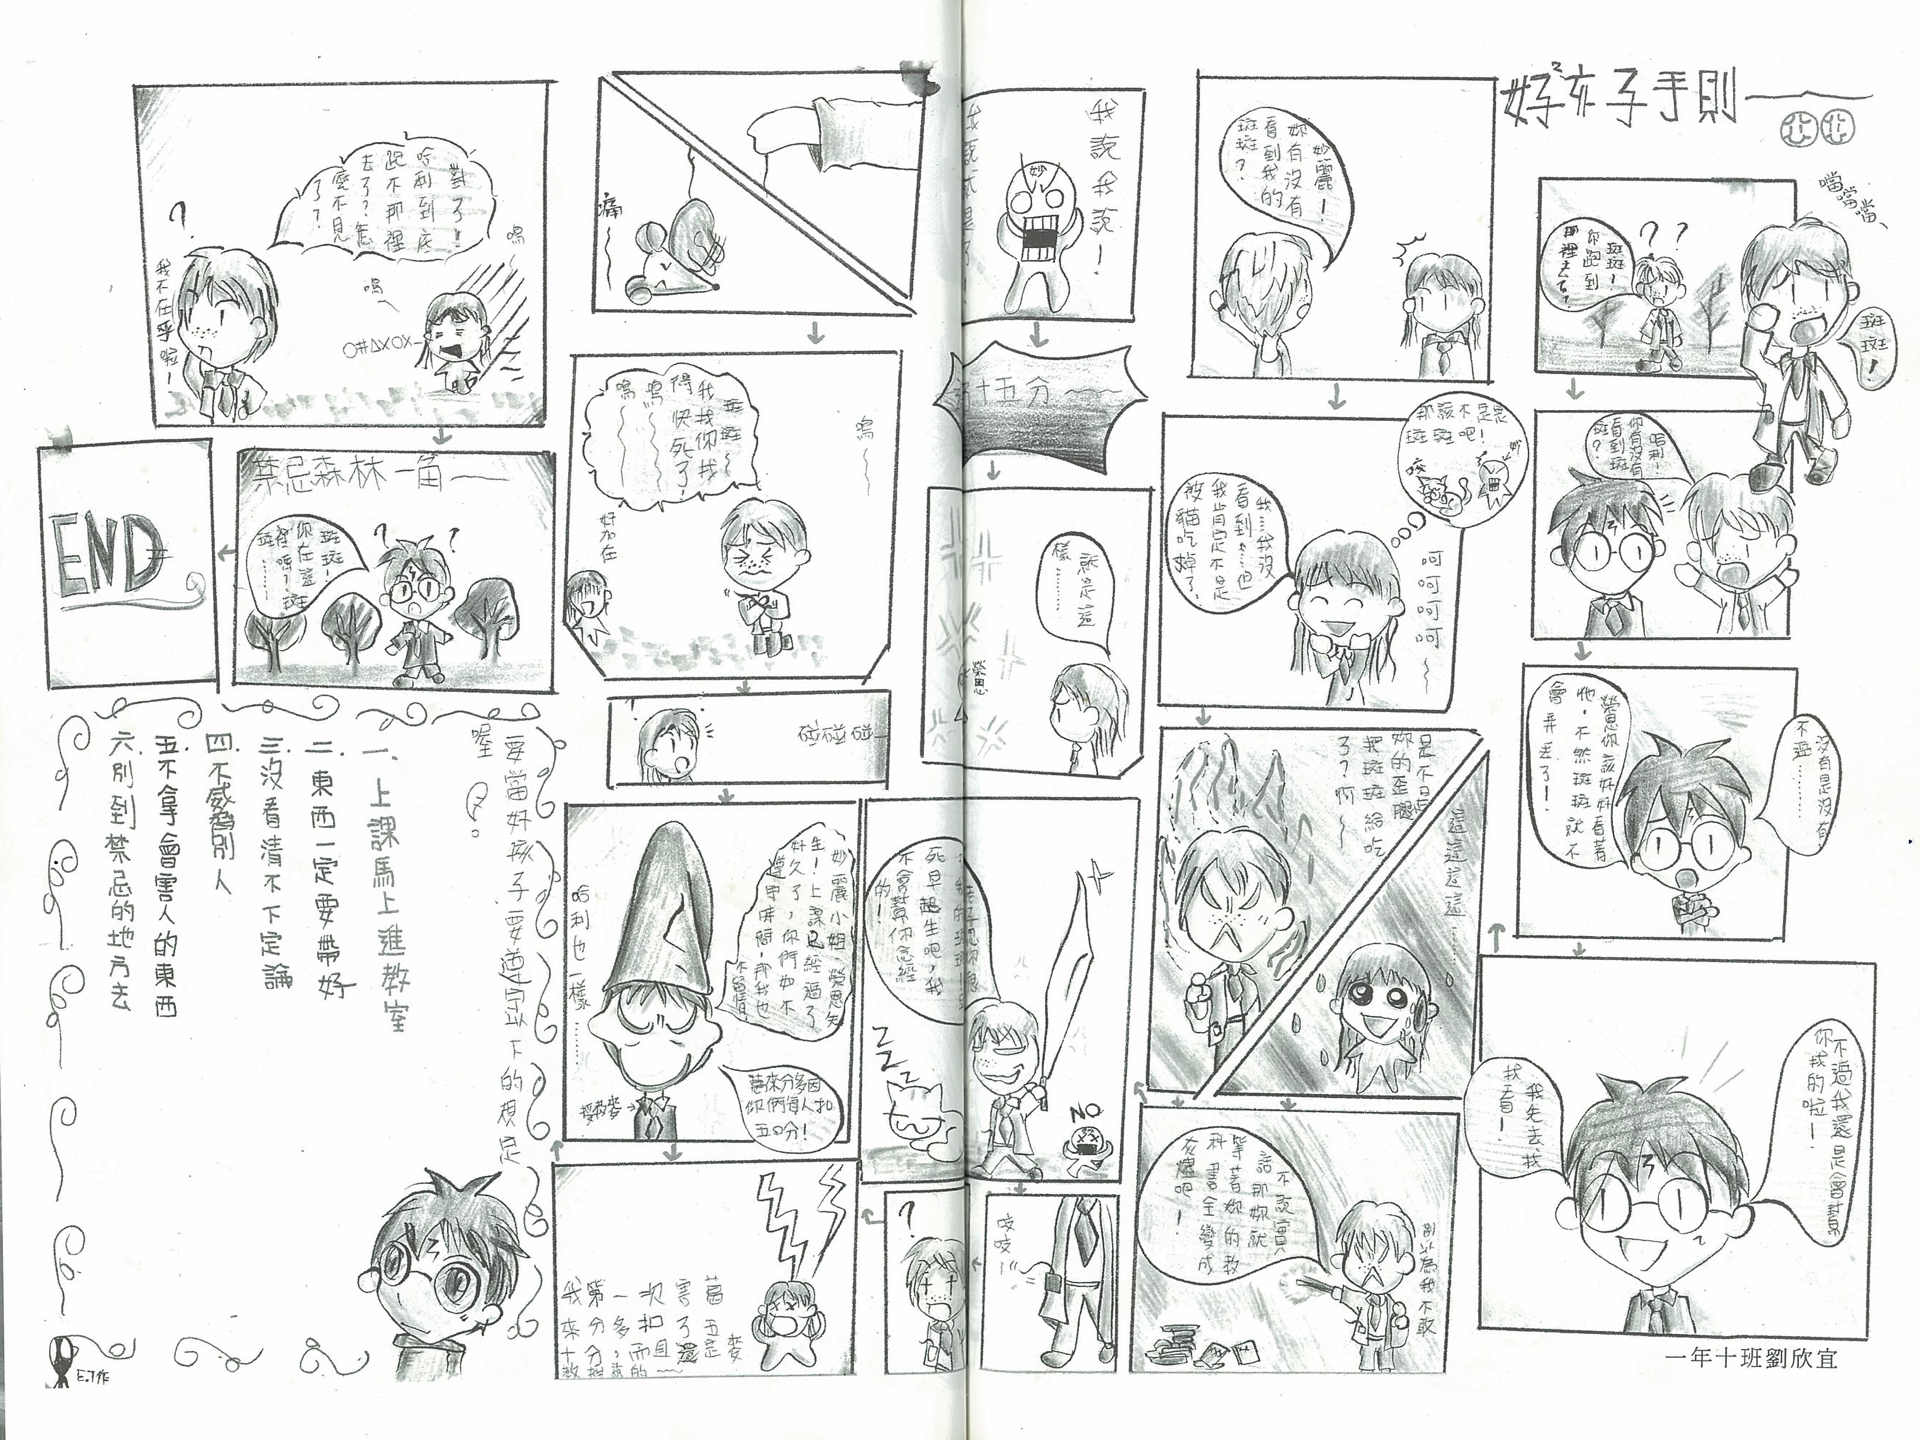 好孩子手則
噹噹噹
斑斑!
斑斑!
你跑到
那裡去了?
??
哈利!
你有沒有
看到斑
斑?
沒有是沒有
不過………
榮恩你該好好看著
牠,不然斑斑就不
會弄丟了!
不過我還是會幫
你找的啦!
我先去找
找看!
妙麗!
妳有沒有
看到我的
斑斑?
那該不是是
斑斑吧!
咬
妙
我……我沒
看到……也
我肯定不是
被貓吃掉了
呵呵呵呵~
是不是
妳的歪腿
把斑斑給吃
了?啊~
這這這這………
別以為我不敢
不說實
話那妳就
等著妳的教
科書全變成
灰燼吧!
我說我說!
妙
五十五分~~~
就是這
樣………
榮恩
死早超生吧,我
不會對你念經
的!
ZZZ
NO
吱吱~
?
妙麗小姐,榮恩先
生!上課已經過了
好久了,你們如不
遵守時間,那我也
不留情
葛來分多因
你們每人扣
五0分!
哈利也一樣………
我第一次害葛
來分多扣了五
十分,而且還是麥
碰碰碰
斑斑~
我找你找
得快死了!
嗚~
嗚~
嗚~
好加在
痛~
對了!
哈利到底
跑不那裡
去了?怎
麼不見
了?
?
我不在乎啦!
嗚~
嗚~
O#△XOX
禁忌森林一笛——
斑斑!
你在這
裡嗎?斑
斑………
??
END
要當好孩子要遵守以下的規定
喔!
一、上課馬上進教室
二、東西一定要帶好
三、沒看清不下定論
四、不威脅別人
五、不拿會害人的東西
六、別到禁忌的地方去
E.T作
一年十班劉欣宜